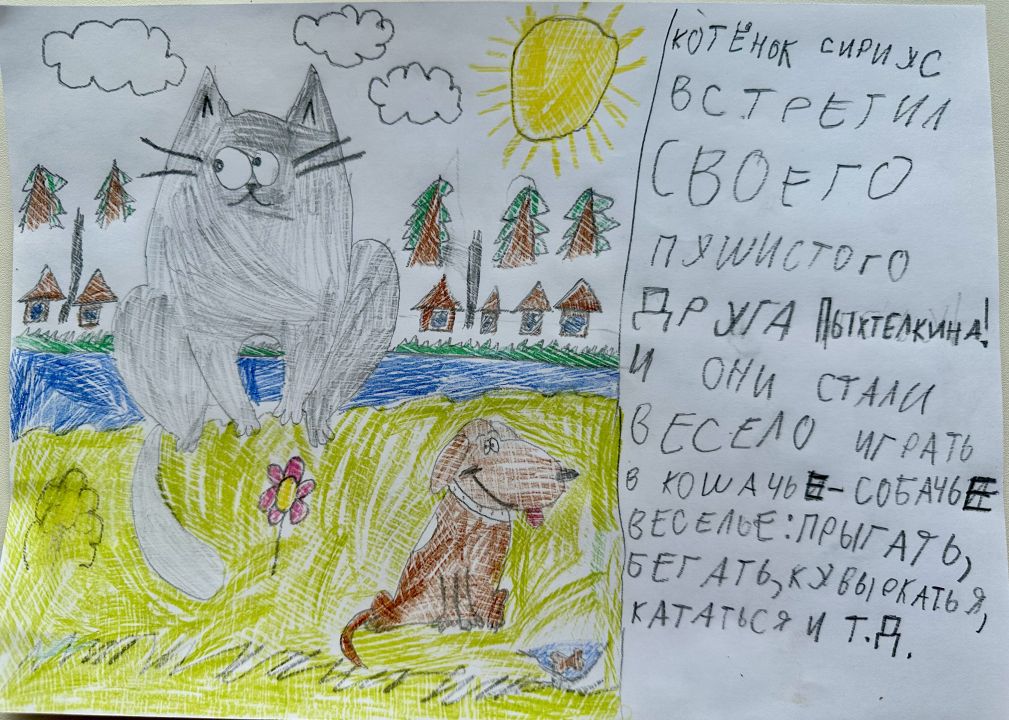 КОТЁНОК СИРИУС
ВСТРЕТИЛ
СВОЕГО
ПУШИСТОГО
ДРУГА ПЫХТЕЛКИНА!
И ОНИ СТАЛИ
ВЕСЕЛО ИГРАТЬ
В КОШАЧЬЕ-СОБАЧЬЕ
ВЕСЕЛЬЕ: ПРЫГАТЬ,
БЕГАТЬ, КУВЫРКАТЬЯ,
КАТАТЬСЯ И Т.Д.